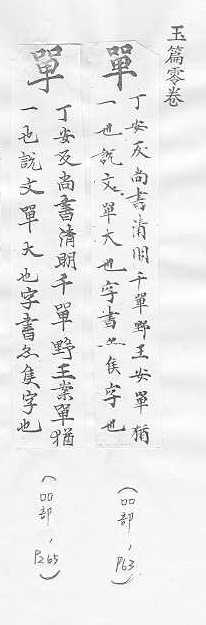 玉篇零卷
單
丁安反尚書清明千單野王安單猶
一也說文單大也字書亦字也
(吅部,P63)
單
丁安反尚書清明千單野王案單猶
一也說文單大也字書亦隻字也
(吅部,P265)